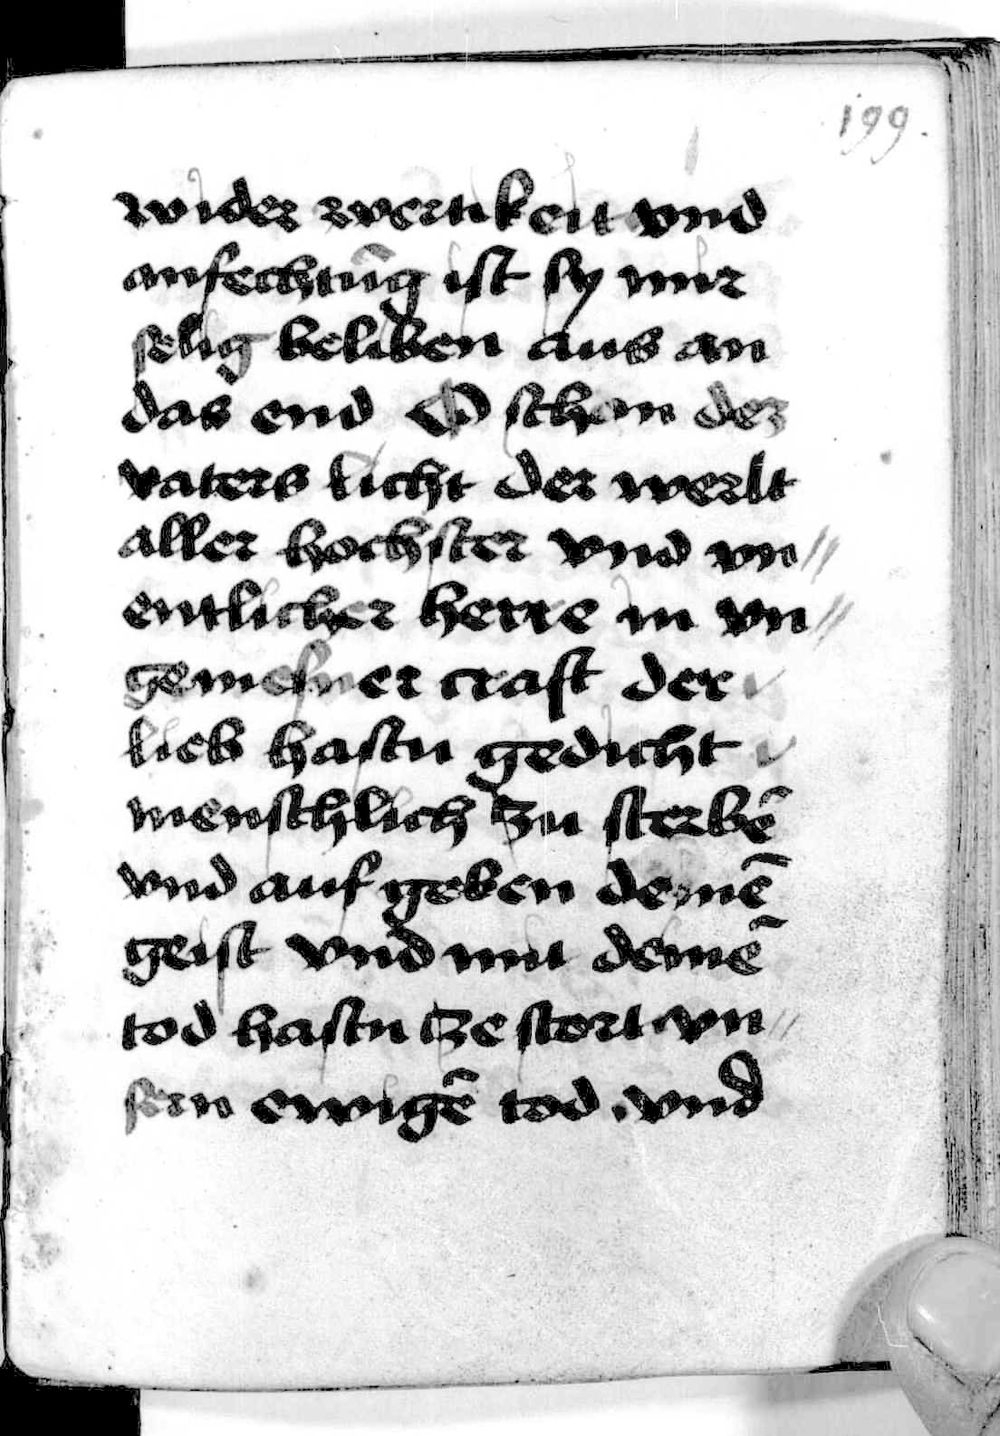 199.
wider wertikeit vnd
anfechtūg ist sy mir
selig beliben aus an
das end O schon des
vaters licht der werlt
aller hochster vnd vn//
entlicher herre in vn//
gemesner craft der
lieb hastu gedicht
menschlich zu sterbē
vnd auf geben deinē
geist vnd mit deinē
tod hastu ze stort vn//
sern ewigē tod . vnd